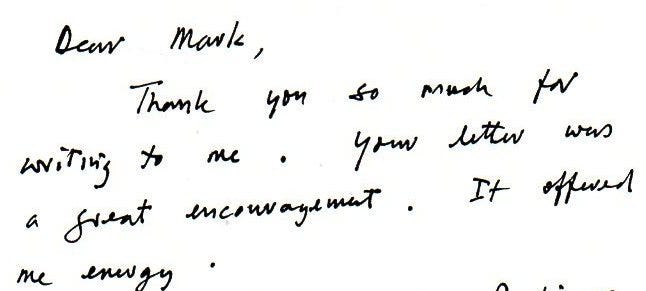 Dear Mark,
Thank you so much for
writing to me. Your letter was
a great encouragement. It offered
me energy.